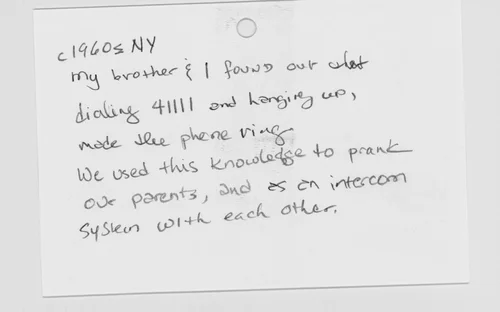 c1960s NY
my brother & I found out that
dialing 41111 and hanging up,
made the phone ring.
We used this knowledge to prank
our parents, and as an intercom
system with each other.